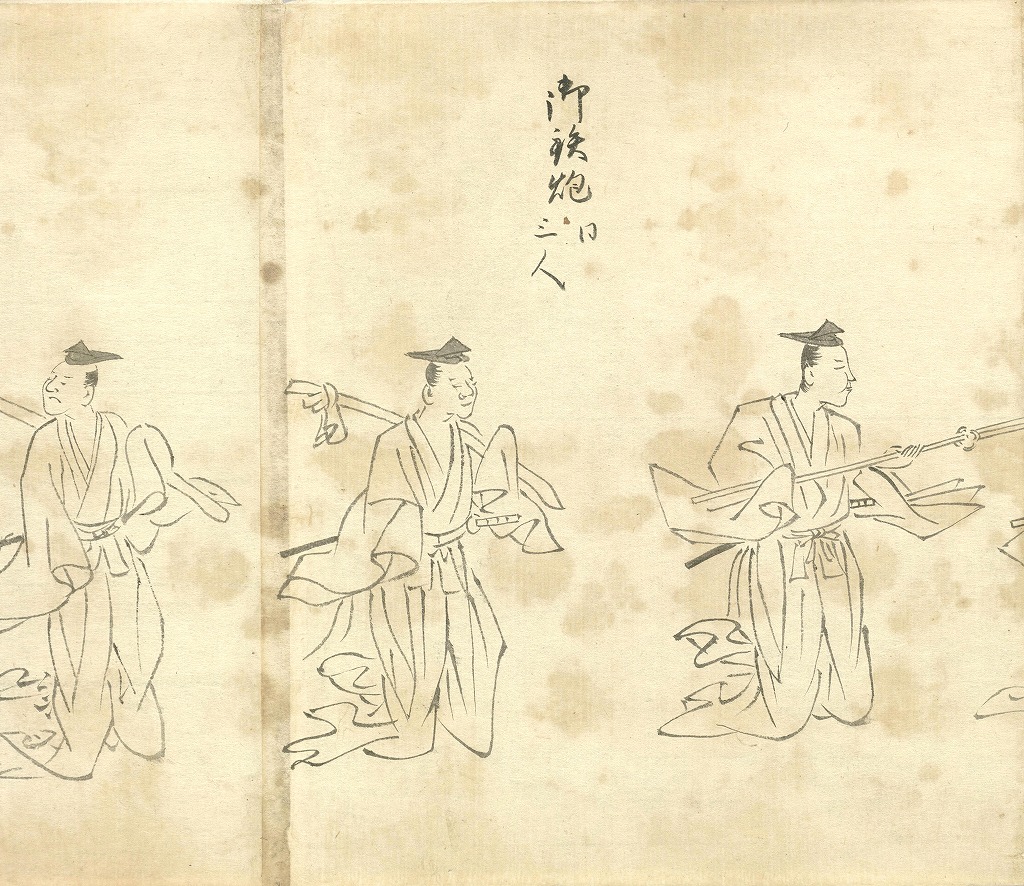 御鉄炮
同
三人